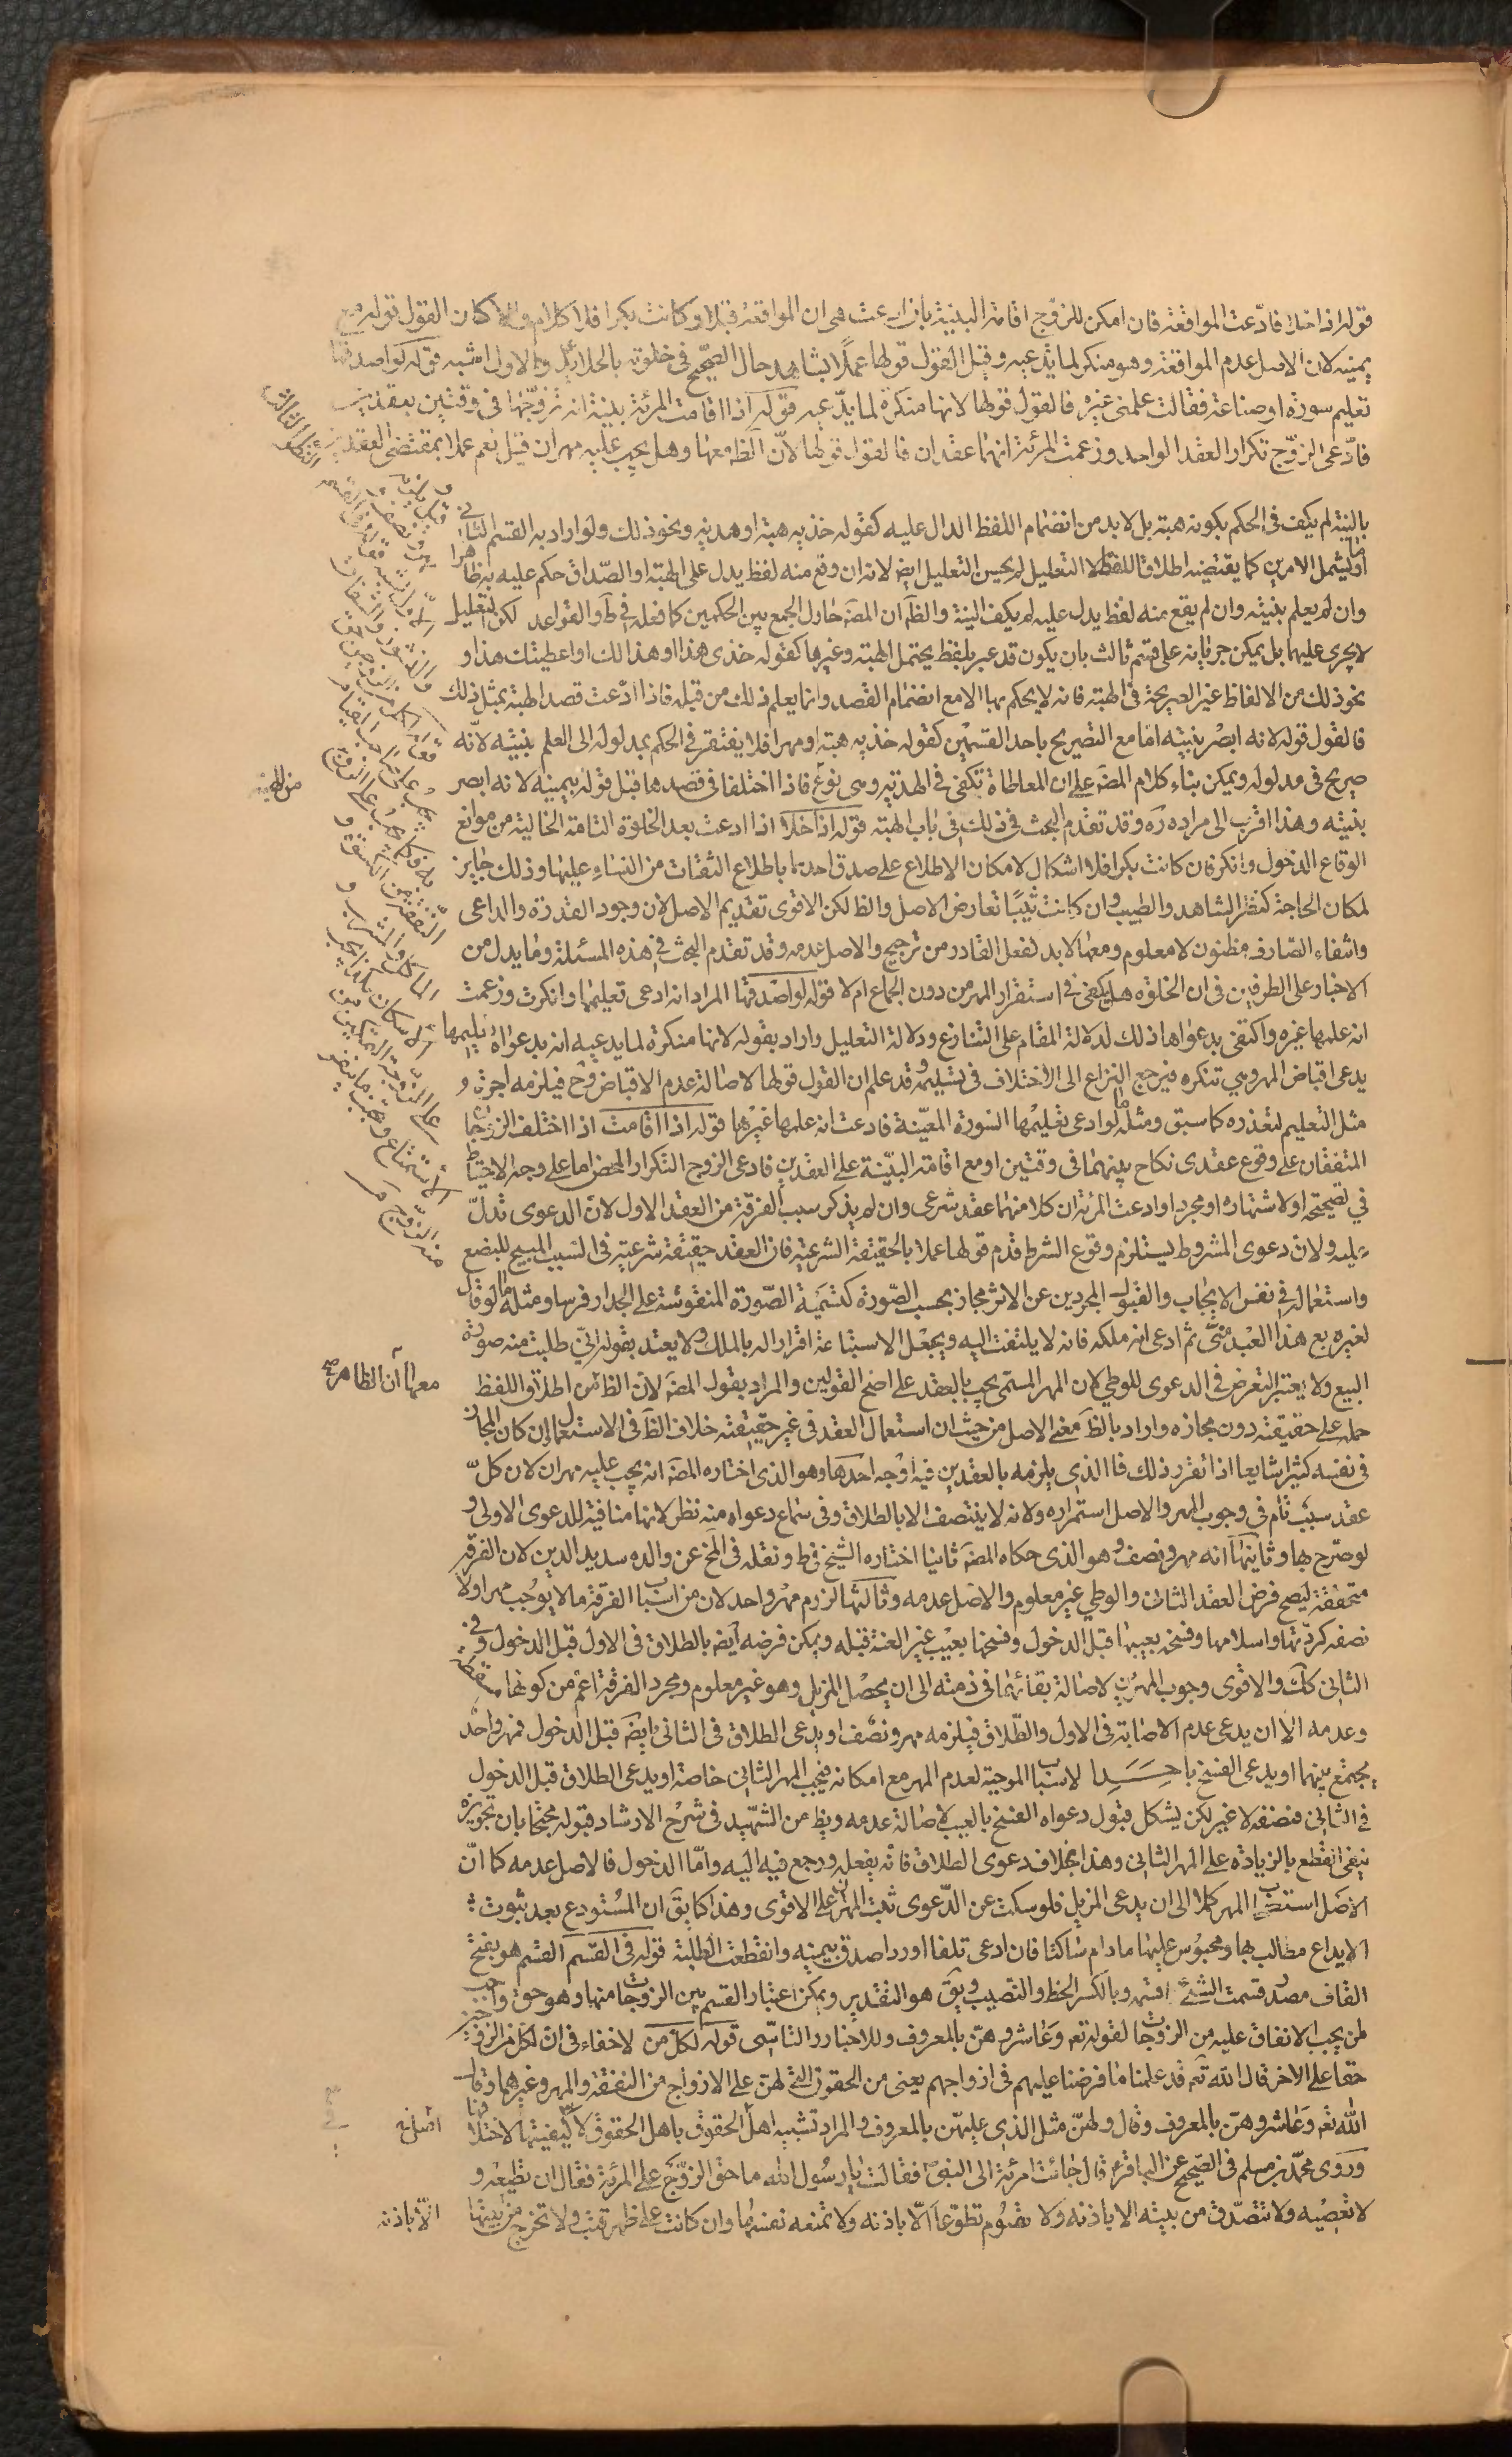 قوله اذا خلا فادّعت المواقعة فان امكن للزوج اقامة البينة بان ادعت هي ان المواقعة قبلا وكانت بكرا فلا كلام والا كان القول قوله مع
يمينه لان الاصل عدم المواقعة وهو منكر لما تدعيه وقيل القول قولها عملا بشاهد حال الصحيح في خلوته بالحلائل والاول اشبه قوله لو اصدقها
تعليم سورة او صناعة فقالت علمني غيره فالقول قولها لانها منكرة لما يدّعيه قوله اذا اقامت المرئة بينة انه تزوجها في وقتين بعقدين
فادّعى الزوج تكرار العقد الواحد وزعمت المرئة انهما عقدان فالقول قولها لانّ الظ معها وهل يجب عليه مهران قيل نعم عملا بمقتضى العقدين
بالنية لم يكف في الحكم بكونه هبة بل لا بد من انضمام اللفظ الدال عليه كقوله خذيه هبة او هدية ونحو ذلك ولو اراد به القسم الثاني
او ما يشمل الامرين كما يقتضيه اطلاق اللفظ لا التعليل لم يحسن التعليل ايض لانه ان وقع منه لفظ يدل على الهبة او الصداق حكم عليه به ظاهرا
وان لم يعلم بنيته وان لم يقع منه لفظ يدل عليه لم يكف النية والظ ان المصَ حاول الجمع بين الحكمين كما فعله في ط والقواعد لكن التعليل
لا يجرى عليهما بل يمكن جريانه على قسم ثالث بان يكون قد عبر بلفظ يحتمل الهبة وغيرها كقوله خذى هذا او هذا لك او اعطيتك هذا و
نحو ذلك من الالفاظ غير الصريحة في الهبة فانه لا يحكم بها الا مع انضمام القصد وانما يعلم ذلك من قبله فاذا ادعت قصد الهبة بمثل ذلك
فالقول قوله لانه ابصر بنيته امّا مع التصريح باحد القسمين كقوله خذيه هبة او مهرا فلا يفتقر في الحكم بمدلوله الى العلم بنيته لانّه
صريح في مدلوله ويمكن بناء كلام المصَ على ان المعاطاة تكفى في الهدية وهى نوع فاذا اختلفا في قصدها قبل قوله بيمينه لانه ابصر
من الهبة
بنيته وهذا اقرب الى مراده رَه وقد تقدم البحث في ذلك في باب الهبة قوله اذا خلا اذا ادعت بعد الخلوة التامة الخالية من موانع
الوقاع الدخول وانكر فان كانت بكرا فلا اشكال لامكان الاطلاع على صدق احدهما باطلاع الثقات من النساء عليها وذلك جايز
لمكان الحاجة كنظر الشاهد والطبيب وان كانت ثيّبًا تعارض الاصل والظ لكن الاقوى تقديم الاصل لان وجود القدرة والداعى
وانتفاء الصّارف مظنون لا معلوم ومعها لا بد لفعل القادر من ترجيح والاصل عدمه وقد تقدم البحث في هذه المسئلة وما يدل من
الاخبار على الطرفين في ان الخلوة هل تكفى في استقرار المهر من دون الجماع ام لا قوله لو اصدقها المراد انه ادعى تعليمها وانكرت وزعمت
انه علمها غيره واكتفى بدعواها ذلك لدلالة المقام على التنازع ودلالة التعليل واراد بقوله لانها منكرة لما يدعيه انه بدعواه تعليمها
يدعى اقباض المهر وهي تنكره فيرجع النزاع الى الاختلاف في تسليمه وقد علم ان القول قولها لاصالة عدم الاقباض وح فيلزمه اجرة
مثل التعليم لتعذره كما سبق ومثله ما لو ادعى تعليمها السورة المعيّنة فادعت انه علمها غيرها قوله اذا اقامت اذا اختلف الزوجان
المتفقان على وقوع عقدى نكاح بينهما في وقتين او مع اقامة البيّنة على العقدين فادعى الزوج التكرار المحض اما على وجه الاحتياط
في تصحيحه او لاشتهاره او مجردا وادعت المرئة ان كلا منهما عقد شرعى وان لم يذكر سبب الفرقة من العقد الاول لان الدعوى تدلّ
عليه ولان دعوى المشروط يستلزم وقوع الشرط قدم قولها عملا بالحقيقة الشرعية فان العقد حقيقة شرعية في السبب المبيح للبضع
واستعماله في نفس الايجاب والقبول المجردين عن الاثر مجاز بحسب الصّورة كتسمية الصّورة المنقوشة على الجدار فرسا ومثله ما لو قال
لغيره بع هذا العبد منّى ثم ادعى انه ملكه فانه لا يلتفت اليه ويجعل الاستباعة اقرارا له بالملك ولا يعتد بقوله انّى طلبت منه صورة
البيع ولا يعتبر التعرض في الدعوى للوطي لان المهر المسمّى يجب بالعقد على اصح القولين والمراد بقول المصَ لان الظ من اطلاق اللفظ
معها أن الظاهر صح
حمله على حقيقته دون مجازه واراد بالظ معنى الاصل من حيث ان استعمال العقد في غير حقيقته خلاف الظ في الاستعمال وان كان المجاز
في نفسه كثيرا شايعا اذا تقرر ذلك فالذى يلزمه بالعقدين فيه اوجه احدها وهو الذى اختاره المصَ انه يجب عليه مهران لان كلّ
عقد سبب تام في وجوب المهر والاصل استمراره ولانه لا ينتصف الا بالطلاق وفي سماع دعواه منه نظر لانها منافية للدعوى الاولى و
لو صرّح بها وثانيها انه مهر ونصف وهو الذى حكاه المصَ ثانيا اختاره الشيخ في ط ونقله في المخ عن والده سديد الدين لان الفرقة
متحققة ليصح فرض العقد الثانى والوطي غير معلوم والاصل عدمه وثالثها لزوم مهر واحد لان من اسباب الفرقة ما لا يوجب مهرا ولا
نصفه كردّتها واسلامها وفسخه بعيبها قبل الدخول وفسخها بعيب غير العنة قبله ويمكن فرضه ايض بالطلاق في الاول قبل الدخول وفي
الثاني كك والاقوى وجوب المهرين لاصالة بقائهما في ذمته الى ان يحصل المزيل وهو غير معلوم ومجرد الفرقة اعم من كونها مسقطة
وعدمه الا ان يدعى عدم الاصابة في الاول والطّلاق فيلزمه مهر ونصف او يدعى الطلاق في الثانى ايضَ قبل الدخول فمهر واحد
يجتمع بينهما او يدعى الفسخ باحد الاسباب الموجبة لعدم المهر مع امكانه فيجب المهر الثاني خاصة او يدعى الطلاق قبل الدخول
في الثاني فنصفه لا غير لكن يشكل قبول دعواه الفسخ بالعيب لاصالة عدمه ويظ من الشّهيد في شرح الارشاد قبوله محتجا بان تجويزه
ينفى القطع بالزيادة على المهر الثاني وهذا بخلاف دعوى الطلاق فانه بفعله ورجع فيه اليه وامّا الدخول فالاصل عدمه كما انّ
الاصل استصحاب المهر كملا الى ان يدعى المزيل فلو سكت عن الدّعوى ثبت المهران على الاقوى وهذا كما بقَ ان المُستودع بعد ثبوت
الايداع مطالب بها ومحبوس عليها ما دام ساكتا فان ادعى تلفا او ردا صدق بيمينه وانقطعت الطلبة قوله في القسم القسم هو بفتح
القاف مصدر قسمت الشئ اقسمه وبالكسر الحظ والنصيب ويقَ هو التقدير ويمكن اعتبار القسم بين الزوجات منها وهو حق واجب
لمن يجب الانفاق عليه من الزوجات لقوله تعَ وعاشروهنّ بالمعروف وللاخبار والتاسّى قوله لكلّ من لا خفاء في ان لكل من الزوجين
حقا على الاخر قال الله تعَ قد علمنا ما فرضنا عليهم في ازواجهم يعنى من الحقوق التي لهنّ على الازواج من النفقة والمهر وغيرهما وقال
الله تعَ وعاشروهنّ بالمعروف وقال ولهنّ مثل الذى عليهنّ بالمعروف والمراد تشبيه اصل الحقوق باصل الحقوق لا كيفيتها لاختلافها
وروى محمّد بن مسلم في الصّحيح عن الباقر ع قال جائت امرئة الى النبى ص فقالت يا رسول الله ما حق الزّوج على المرئة فقال ان تطيعه و
لا تعصيه ولا تتصدّق من بيته الا باذنه ولا تصوم تطوّعا الّا باذنه ولا تمنعه نفسها وان كانت على ظهر قتب ولا تخرج من بيتها
الّا باذنه